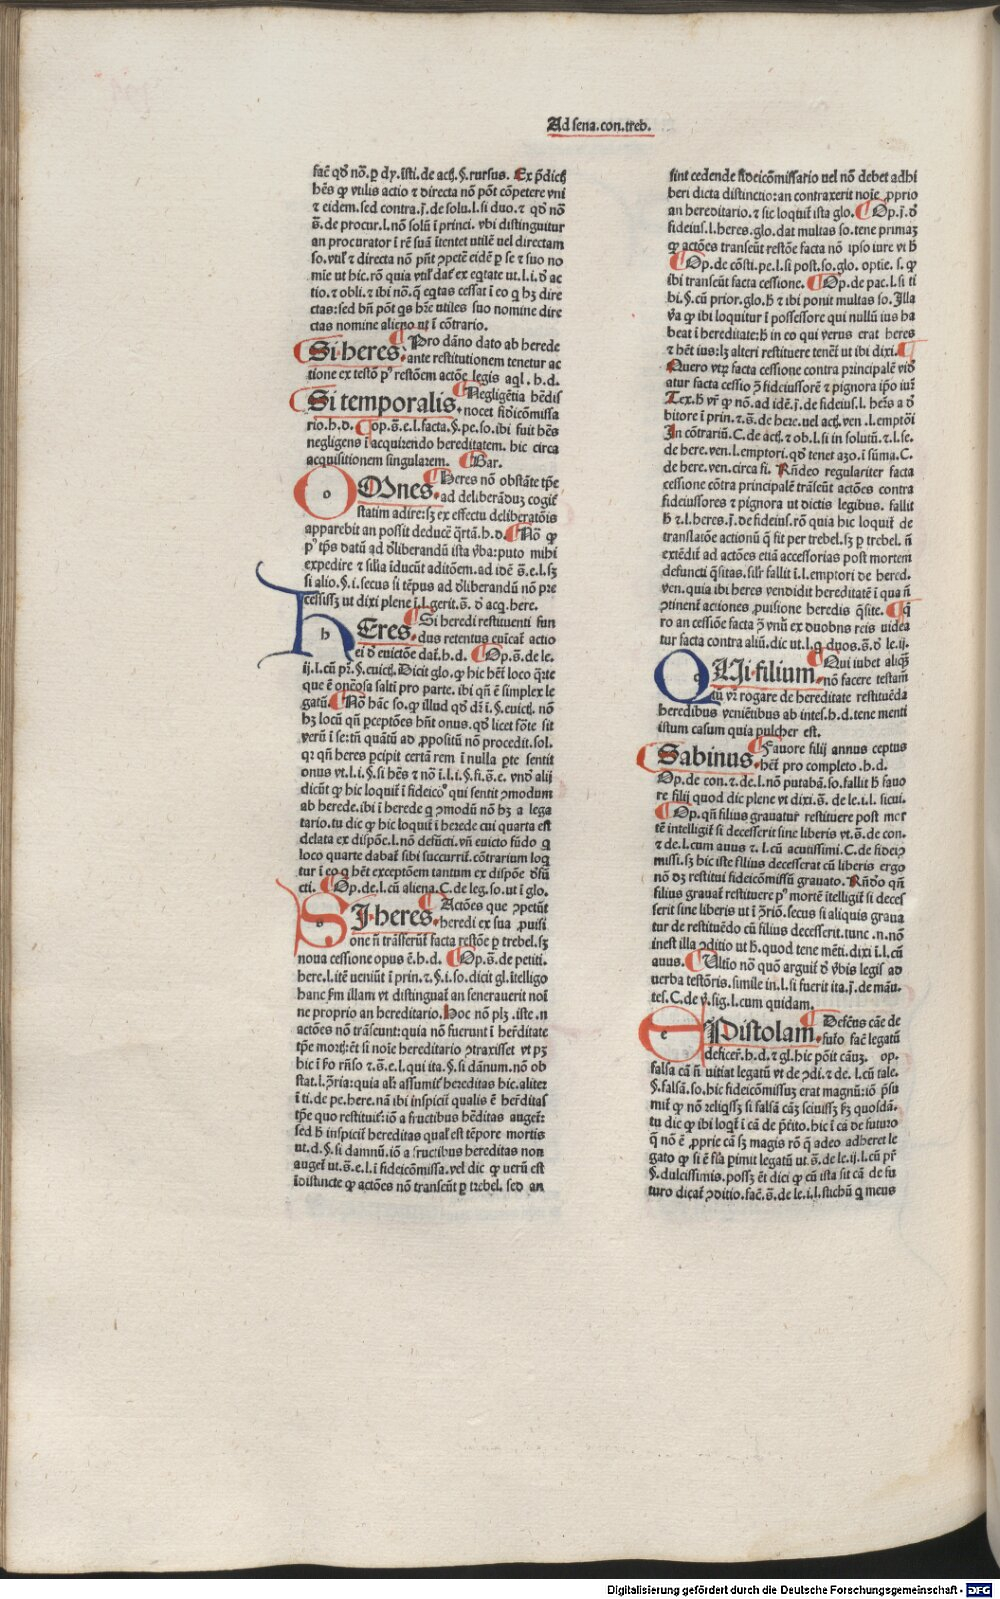 Ad sena.con.treb.
fac̄ qđ nō.ꝑ dy.īsti.de act̄.§.rursus. Ex p̄dict̄
hēs ꝙ vtilis actio ⁊ directa nō pōt cōpetere vni
⁊ eidem.sed contra.j̄.de solu.l.si duo.⁊ qđ nō
s̄.de procur.l.nō solū ī princi. vbi distinguitur
an procurator ī rē suā ītentet utilē uel directam
so.vtil̄ ⁊ directa nō pn̄t ꝯpetē eidē ꝑ se ⁊ suo no
mīe ut hic.rō quia vtil̄ dat̄ ex eq̄tate ut.l.i.đ ac
tio.⁊ obli.⁊ ibi nō.q̄ eq̄tas cessat ī eo q hꝫ dire
ctas:sed bn̄ pōt qs hr̄e utiles suo nomine dire
ctas nomine alieno ut ī cōtrario.
Si heres. Pro dāno dato ab herede
ante restitutionem tenetur ac
tione ex testō pꝰ restōem actōe legis aql̄.h.d.
Si temporalis. Negligētia hēdis
nocet fidicōmissa
rio.h.d. op.s̄.e.l.facta.§.pe.so.ibi fuit hēs
negligens ī acquirendo hereditatem. hic circa
acquisitionem singularem. Bar.
o OMnes. Heres nō obstāte tp̄e
ad deliberāduꝫ cogit̄
statim adire:sꝫ ex effectu deliberatōis
apparebit an possit deducē q̄rtā.h.d. Nō ꝙ
pꝰ tp̄s datū ad đliberandū ista v̄ba:puto mihi
expedire ⁊ silia īducūt aditōem.ad idē s̄.e.l.sꝫ
si alio.§.i.secus si tēpus ad đliberandū nō pre
cessissꝫ ut dixi plene ī.l.gerit.s̄. đ acq.here.
h HEres. Si heredi restituenti fun
dus retentus euīcat̄ actio
ei đ euictōe dat̄.h.d. Op.s̄.de le.
ij.l.cū pr̄.§.euict̄. Dicit glo.ꝙ hic hēt loco q̄rte
que ē onerosa saltī pro parte. ibi qn̄ ē simplex le
gatū. Nō hāc so.ꝙ illud qđ dr̄ ī.§.euict̄. nō
hꝫ locū qn̄ ꝑceptōes hn̄t onus.qđ licet fōte sit
verū ī se:tn̄ quātū ad ꝓpositū nō procedit.sol.
qꝛ qn̄ heres ꝑcipit certā rem ī nulla ꝑte sentit
onus vt.l.i.§.si hēs ⁊ nō ī.l.i.§.fi.s̄.e. vnđ alij
dicūt ꝙ hic loquit̄ ī fideicoꝰ qui sentit ꝯmodum
ab herede.ibi ī herede q ꝯmodū nō hꝫ a lega
tario.tu dic ꝙ hic loquit̄ ī herede cui quarta est
delata ex dispōe.l.nō defūcti.vn̄ euicto fūdo q
loco quarte dabat̄ sibi succurrit̄. cōtrarium loq̄
tur ī eo q hēt exceptōem tantum ex dispōe đfū
cti. Op.de.l.cū aliena.C.de leg.so.ut ī glo.
s SI heres. Actōes que ꝯpetūt
heredi ex sua ꝓuisi
one n̄ trāsferūt̄ facta restōe ꝑ trebel.sꝫ
noua cessione opus ē.h.d. Op.s̄.de petiti.
here.l.itē ueniūt ī prin.⁊.§.i.so.dicit gl.ītelligo
hanc ẜm illam vt distinguat̄ an feneraueri̇t noī
ne proprio an hereditario. Hoc nō plꝫ.iste.n
actōes nō trāseunt:quia nō fuerunt ī her̄ditate
tp̄e mort̄:ēt si noīe hereditario ꝯtraxisset vt pꝫ
hic ī ẜo rn̄so ⁊ s̄.e.l.qui ita.§.si dānum.nō ob
stat.l.ꝯ̄ria:quia al̄r assumit̄ hereditas hic.aliter
ī ti.de pe.here.nā ibi inspicit̄ qualis ē her̄ditas
tp̄e quo restituit̄:iō a fructibus hēditas auget̄:
sed h̄ inspicit̄ hereditas qual̄ est tēpore mortis
ut.d.§.si damnū.iō a fructibus hereditas non
auget̄ ut.s̄.e.l.ī fideicōmissa.vel dic ꝙ uerū est
īdistincte ꝙ actōes nō transeūt ꝑ trebel. sed an
sint cedende fideicōmissario uel nō debet adhi
beri dicta distinctio:an contraxerit noīe ꝓprio
an hereditario.⁊ sic loquit̄ ista glo. Op.j̄.đ
fideius.l.heres.glo.dat multas so.tene primaꝫ
ꝙ actōes transeūt restōe facta nō ipso iure vt h̄
Op.de cōsti.pe.l.si post.so.glo. optie. s.ꝙ
ibi transeūt facta cessione. Op.de pac.l.si ti
bi.§.cū prior.glo.h̄ ⁊ ibi ponit multas so. Illa
v̄a ꝙ ibi loquitur ī possessore qui nullū ius ha
beat ī hereditate:h̄ in eo qui verus erat heres
⁊ hēt ius:lꝫ alteri restituere tenet̄ ut ibi dixi.
Quero vtꝝ facta cessione contra principalē viđ
atur facta cessio ꝯ̄ fideiussorē ⁊ pignora ip̄o iur̄
Tex.h̄ vr̄ ꝙ nō.ad idē.j̄.de fideius.l. her̄s a đ
bitore ī prin.⁊.s̄.de here.uel act̄.ven.l.emptōi
In cōtrariū.C.de act̄.⁊ ob.l.si in solutū.⁊.l.se.
de here.ven.l.emptori.qđ tenet azo.ī sūma.C.
de here.ven.circa fi. Rn̄deo regulariter facta
cessione cōtra principalē trāseūt actōes contra
fideiussores ⁊ pignora ut dictis legibus. fallit
h̄ ⁊.l.heres.j̄.de fideius.rō quia hic loquit̄ de
translatōe actionū q̄ fit per trebel.sꝫ ꝑ trebel. n̄
extēdit̄ ad actōes etiā accessorias post mortem
defuncti q̄sitas.sil̄r fallit ī.l.emptori de hered.
ven.quia ibi heres vendidit hereditatē ī qua n̄
ꝯtinent̄ actiones ꝓuisione heredis q̄site. Q̄
ro an cessiōe facta ꝯ̄ vnū ex duobus reis uidea
tur facta contra aliū.dic ut.l.q duos.s̄.đ le.ij.
q QUi filium. Qui iubet aliqꝫ
nō facere testam̄
tū vr̄ rogare de hereditate restituēda
heredibus veniētibus ab intes.h.d.tene menti
istum casum quia pulcher est.
Sabinus. Fauore filij annus ceptus
hēt̄ pro completo.h.d.
Op.de con.⁊ de.l.nō putabā.so.fallit h̄ fauo
re filij quod dic plene vt dixi.s̄.de le.i.l. sicui.
Op.qn̄ filius grauatur̄ restituere post mor
tē intelligit̄ si decesserit sine liberis vt.s̄.de con.
⁊ de.l.cum auus ⁊.l.cū acutissimi.C.de fideiꝯ
missi.sꝫ hic iste filius decesserat cū liberis ergo
nō dꝫ restitui fideicōmissū grauato. Rn̄do qn̄
filius grauat̄ restituere pꝰ mortē ītelligit̄ si deces
serit sine liberis ut ī ꝯ̄riō.secus si aliquis graua
tur de restituēdo cū filius decesserit.tunc.n.nō
inest illa ꝯditio ut h̄.quod tene mēti.dixi ī.l.cū
auus. Ultīo nō quō arguit̄ đ v̄bis legis̄ ad
uerba testōris.simile in.l.si fuerit ita.j̄.de māu.
tes.C.de v̄.sig.l.cum quidam.
e EPistolam. Defcn̄s cāe de
futo fac̄ legatū
deficer̄.h.d.⁊ gl.hic pōit cāuꝫ. op.
falsa cā n̄ uitiat legatū vt de ꝯdi.⁊ de.l.cū tale.
§.falsā.so.hic fideicōmissuꝫ erat magnū:iō p̄su
mit̄ ꝙ nō reliqssꝫ si falsā cāꝫ sciuissꝫ ẜꝫ quosdā.
tu dic ꝙ ibi loqt̄ ī cā de p̄tito.hic ī cā de futuro
q̄ nō ē ꝓprie cā sꝫ magis rō q̄ adeo adheret le
gato ꝙ si ē fl̄a ꝑimit legatū ut.s̄.de le.ij.l.cū pr̄
§.dulcissimis.possꝫ ēt dici ꝙ cū ista sit cā de fu
turo dicat̄ ꝯditio.fac̄.s̄.de le.i.l.stichū q meus
Digitalisierung gefördert durch die Deutsche Forschungsgemeinschaft - DFG